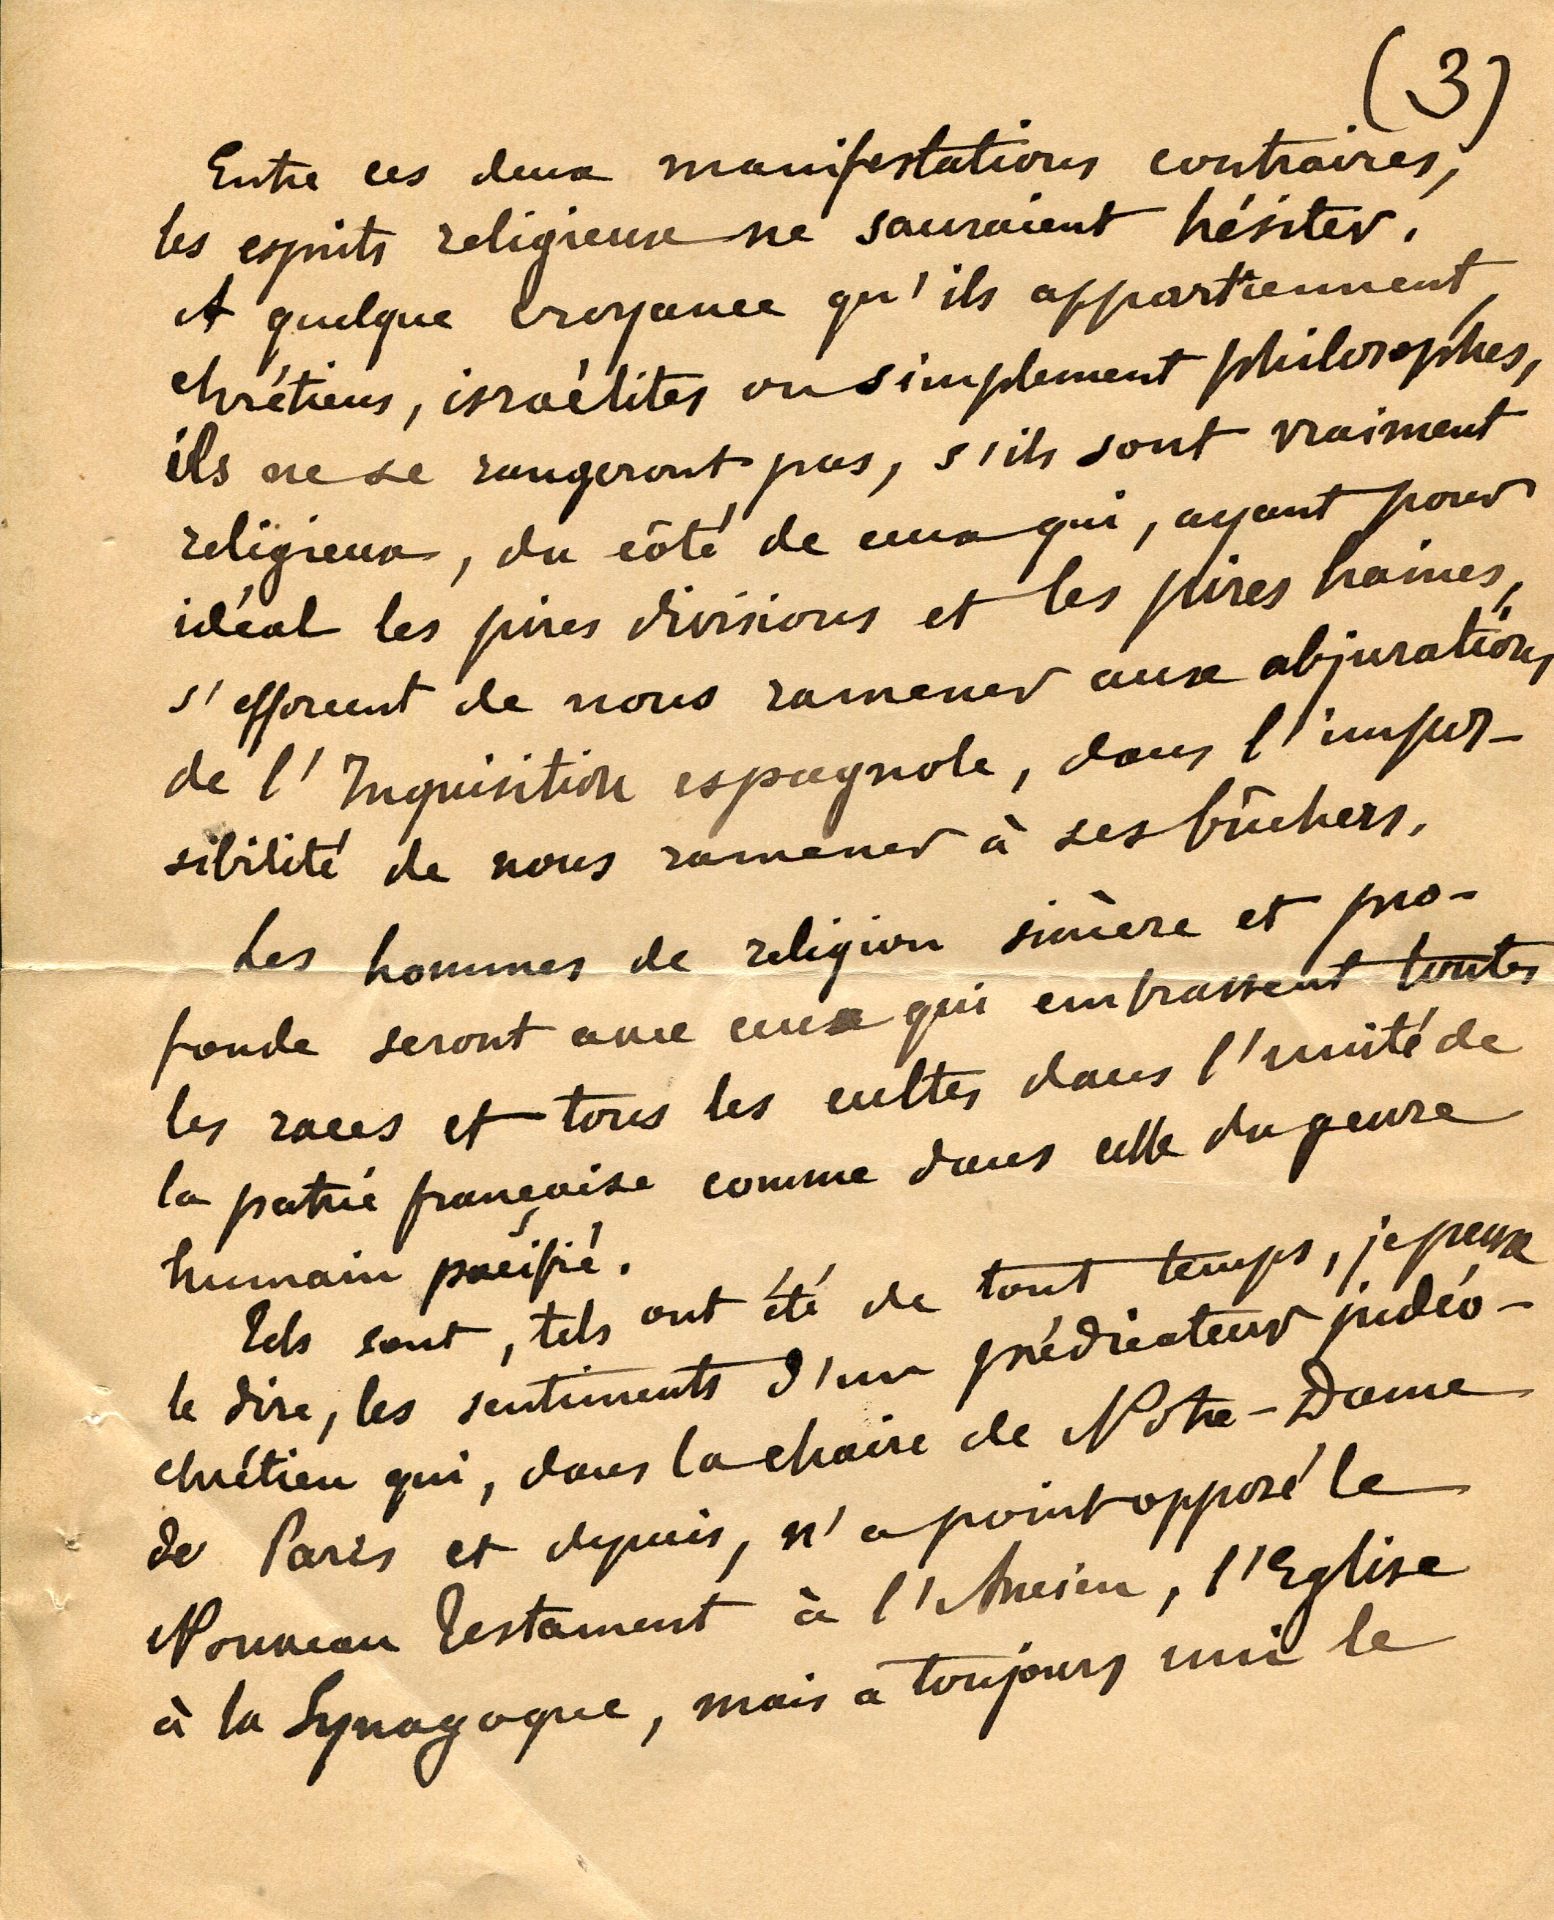 (3)
Entre ces deux manifestations contraires,
les esprits religieux ne sauraient hésiter.
A quelque croyance qu'ils appartiennent,
chrétiens, israélites ou simplement philosophes,
ils ne se rangeront pas, s'ils sont vraiment
religieux, du côté de ceux qui, ayant pour
idéal les pires divisions et les pires haines,
s'efforcent de nous ramener aux abjurations
de l'Inquisition espagnole, dans l'impos-
sibilité de nous ramener à ses bûchers.
Les hommes de religion sincère et pro-
fonde seront avec ceux qui embrassent toutes
les races et tous les cultes dans l'unité de
la patrie française comme dans celle du genre
humain pacifié.
Tels sont, tels ont été de tout temps, je peux
le dire, les sentiments d'un prédicateur judéo-
chrétien qui, dans la chaire de Notre-Dame
de Paris et depuis, n'a point opposé le
Nouveau Testament à l'Ancien, l'Eglise
à la Synagogue, mais a toujours uni le